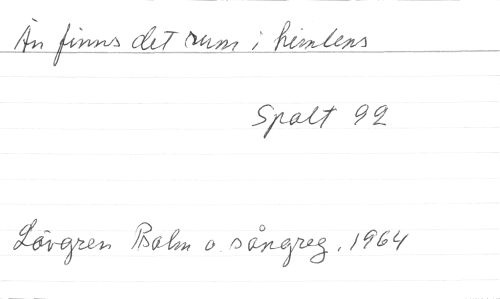 Än finns det rum i himlens
Spalt 92
Lövgren Psalm o. sångreg. 1964